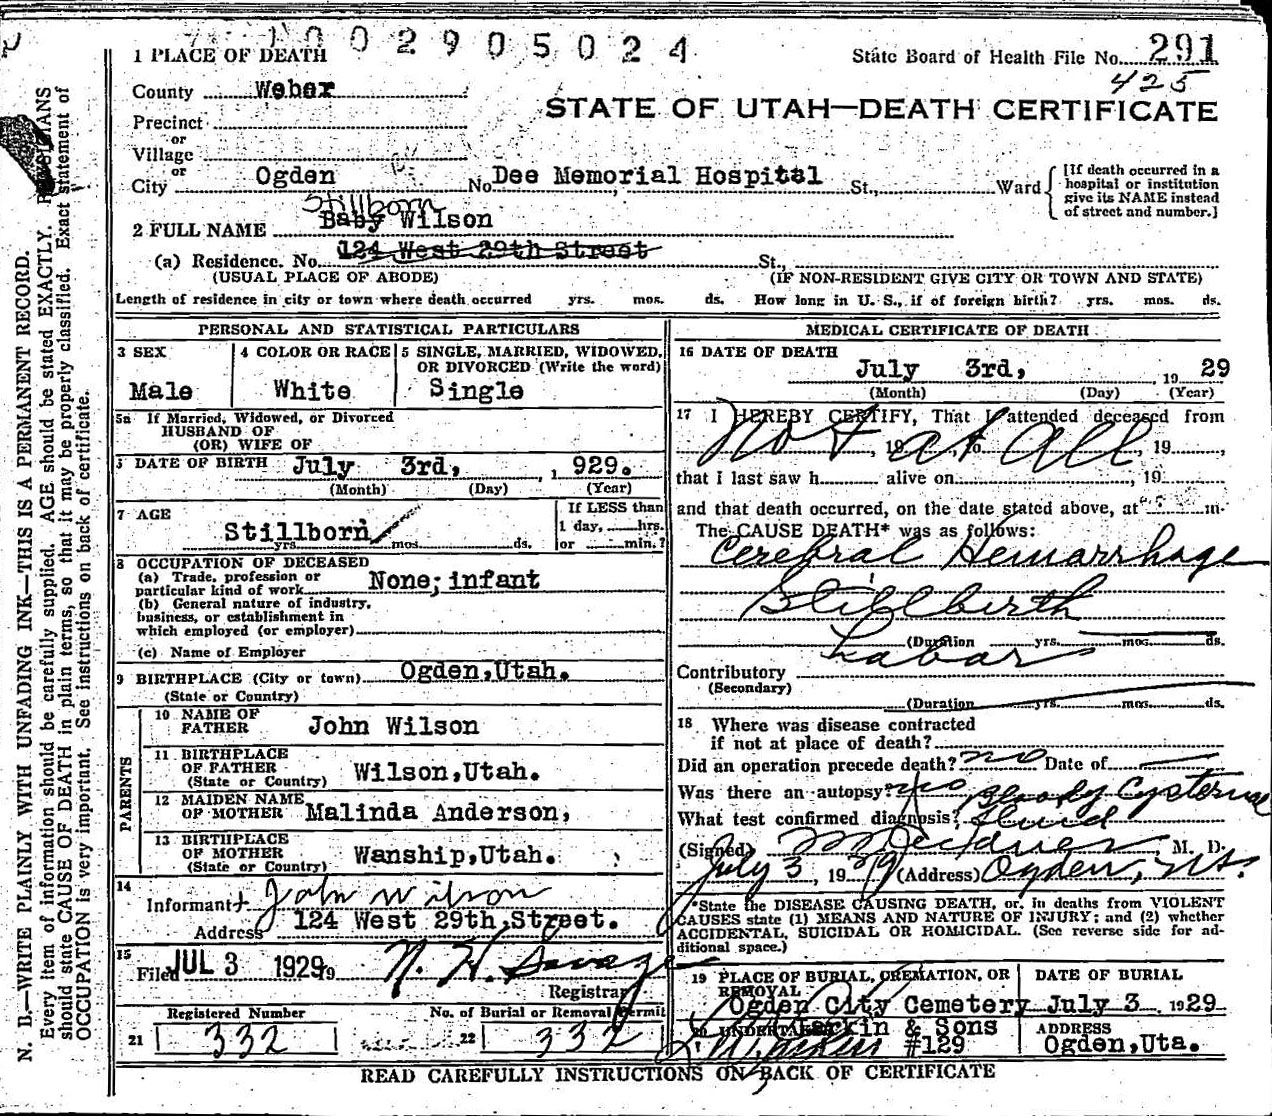 1002905024
1 PLACE OF DEATH
State Board of Health File No. 291
425
County Weber
STATE OF UTAH—DEATH CERTIFICATE
Precinct
or
Village
or
City Ogden No. Dee Memorial Hospital St., Ward
[If death occurred in a hospital or institution give its NAME instead of street and number.]
Stillborn
2 FULL NAME Baby Wilson
(a) Residence. No. 124 West 29th Street St.,
(USUAL PLACE OF ABODE) (IF NON-RESIDENT GIVE CITY OR TOWN AND STATE)
Length of residence in city or town where death occurred yrs. mos. ds. How long in U. S., if of foreign birth? yrs. mos. ds.
PERSONAL AND STATISTICAL PARTICULARS
3 SEX
Male
4 COLOR OR RACE
White
5 SINGLE, MARRIED, WIDOWED,
OR DIVORCED (Write the word)
Single
5a If Married, Widowed, or Divorced
HUSBAND OF
(OR) WIFE OF
DATE OF BIRTH July 3rd, 1929.
(Month) (Day) (Year)
7 AGE
Stillborn
yrs. mos. ds.
If LESS than
1 day, hrs.
or min.?
8 OCCUPATION OF DECEASED
(a) Trade, profession or
particular kind of work None; infant
(b) General nature of industry,
business, or establishment in
which employed (or employer)
(c) Name of Employer
9 BIRTHPLACE (City or town) Ogden, Utah.
(State or Country)
PARENTS
10 NAME OF
FATHER John Wilson
11 BIRTHPLACE
OF FATHER
(State or Country) Wilson, Utah.
12 MAIDEN NAME
OF MOTHER Malinda Anderson,
13 BIRTHPLACE
OF MOTHER
(State or Country) Wanship, Utah.
14
Informant John Wilson
Address 124 West 29th Street.
15
Filed JUL 3 1929 19 N. H. Savage
Registrar
Registered Number
21 332
No. of Burial or Removal Permit
22 332
MEDICAL CERTIFICATE OF DEATH
16 DATE OF DEATH
July 3rd, 1929
(Month) (Day) (Year)
17 I HEREBY CERTIFY, That I attended deceased from
Not at all, 19 to 19
that I last saw h alive on , 19
and that death occurred, on the date stated above, at m.
The CAUSE DEATH* was as follows:
Cerebral Hemorrhage
Stillbirth
(Duration yrs. mos. ds.
Labor
Contributory
(Secondary)
(Duration yrs. mos. ds.
18 Where was disease contracted
if not at place of death?
Did an operation precede death? no Date of
Was there an autopsy? no
What test confirmed diagnosis? Bloody Cysternae fluid
(Signed) M. D.
July 3, 1929 (Address) Ogden, Ut.
*State the DISEASE CAUSING DEATH, or, in deaths from VIOLENT
CAUSES state (1) MEANS AND NATURE OF INJURY; and (2) whether
ACCIDENTAL, SUICIDAL OR HOMICIDAL. (See reverse side for ad-
ditional space.)
19 PLACE OF BURIAL, CREMATION, OR
REMOVAL
Ogden City Cemetery
DATE OF BURIAL
July 3 1929
20 UNDERTAKER Larkin & Sons
#129
ADDRESS
Ogden, Uta.
READ CAREFULLY INSTRUCTIONS ON BACK OF CERTIFICATE
N. B.—WRITE PLAINLY WITH UNFADING INK—THIS IS A PERMANENT RECORD.
Every item of information should be carefully supplied. AGE should be stated EXACTLY. PHYSICIANS
should state CAUSE OF DEATH in plain terms, so that it may be properly classified. Exact statement of
OCCUPATION is very important. See instructions on back of certificate.